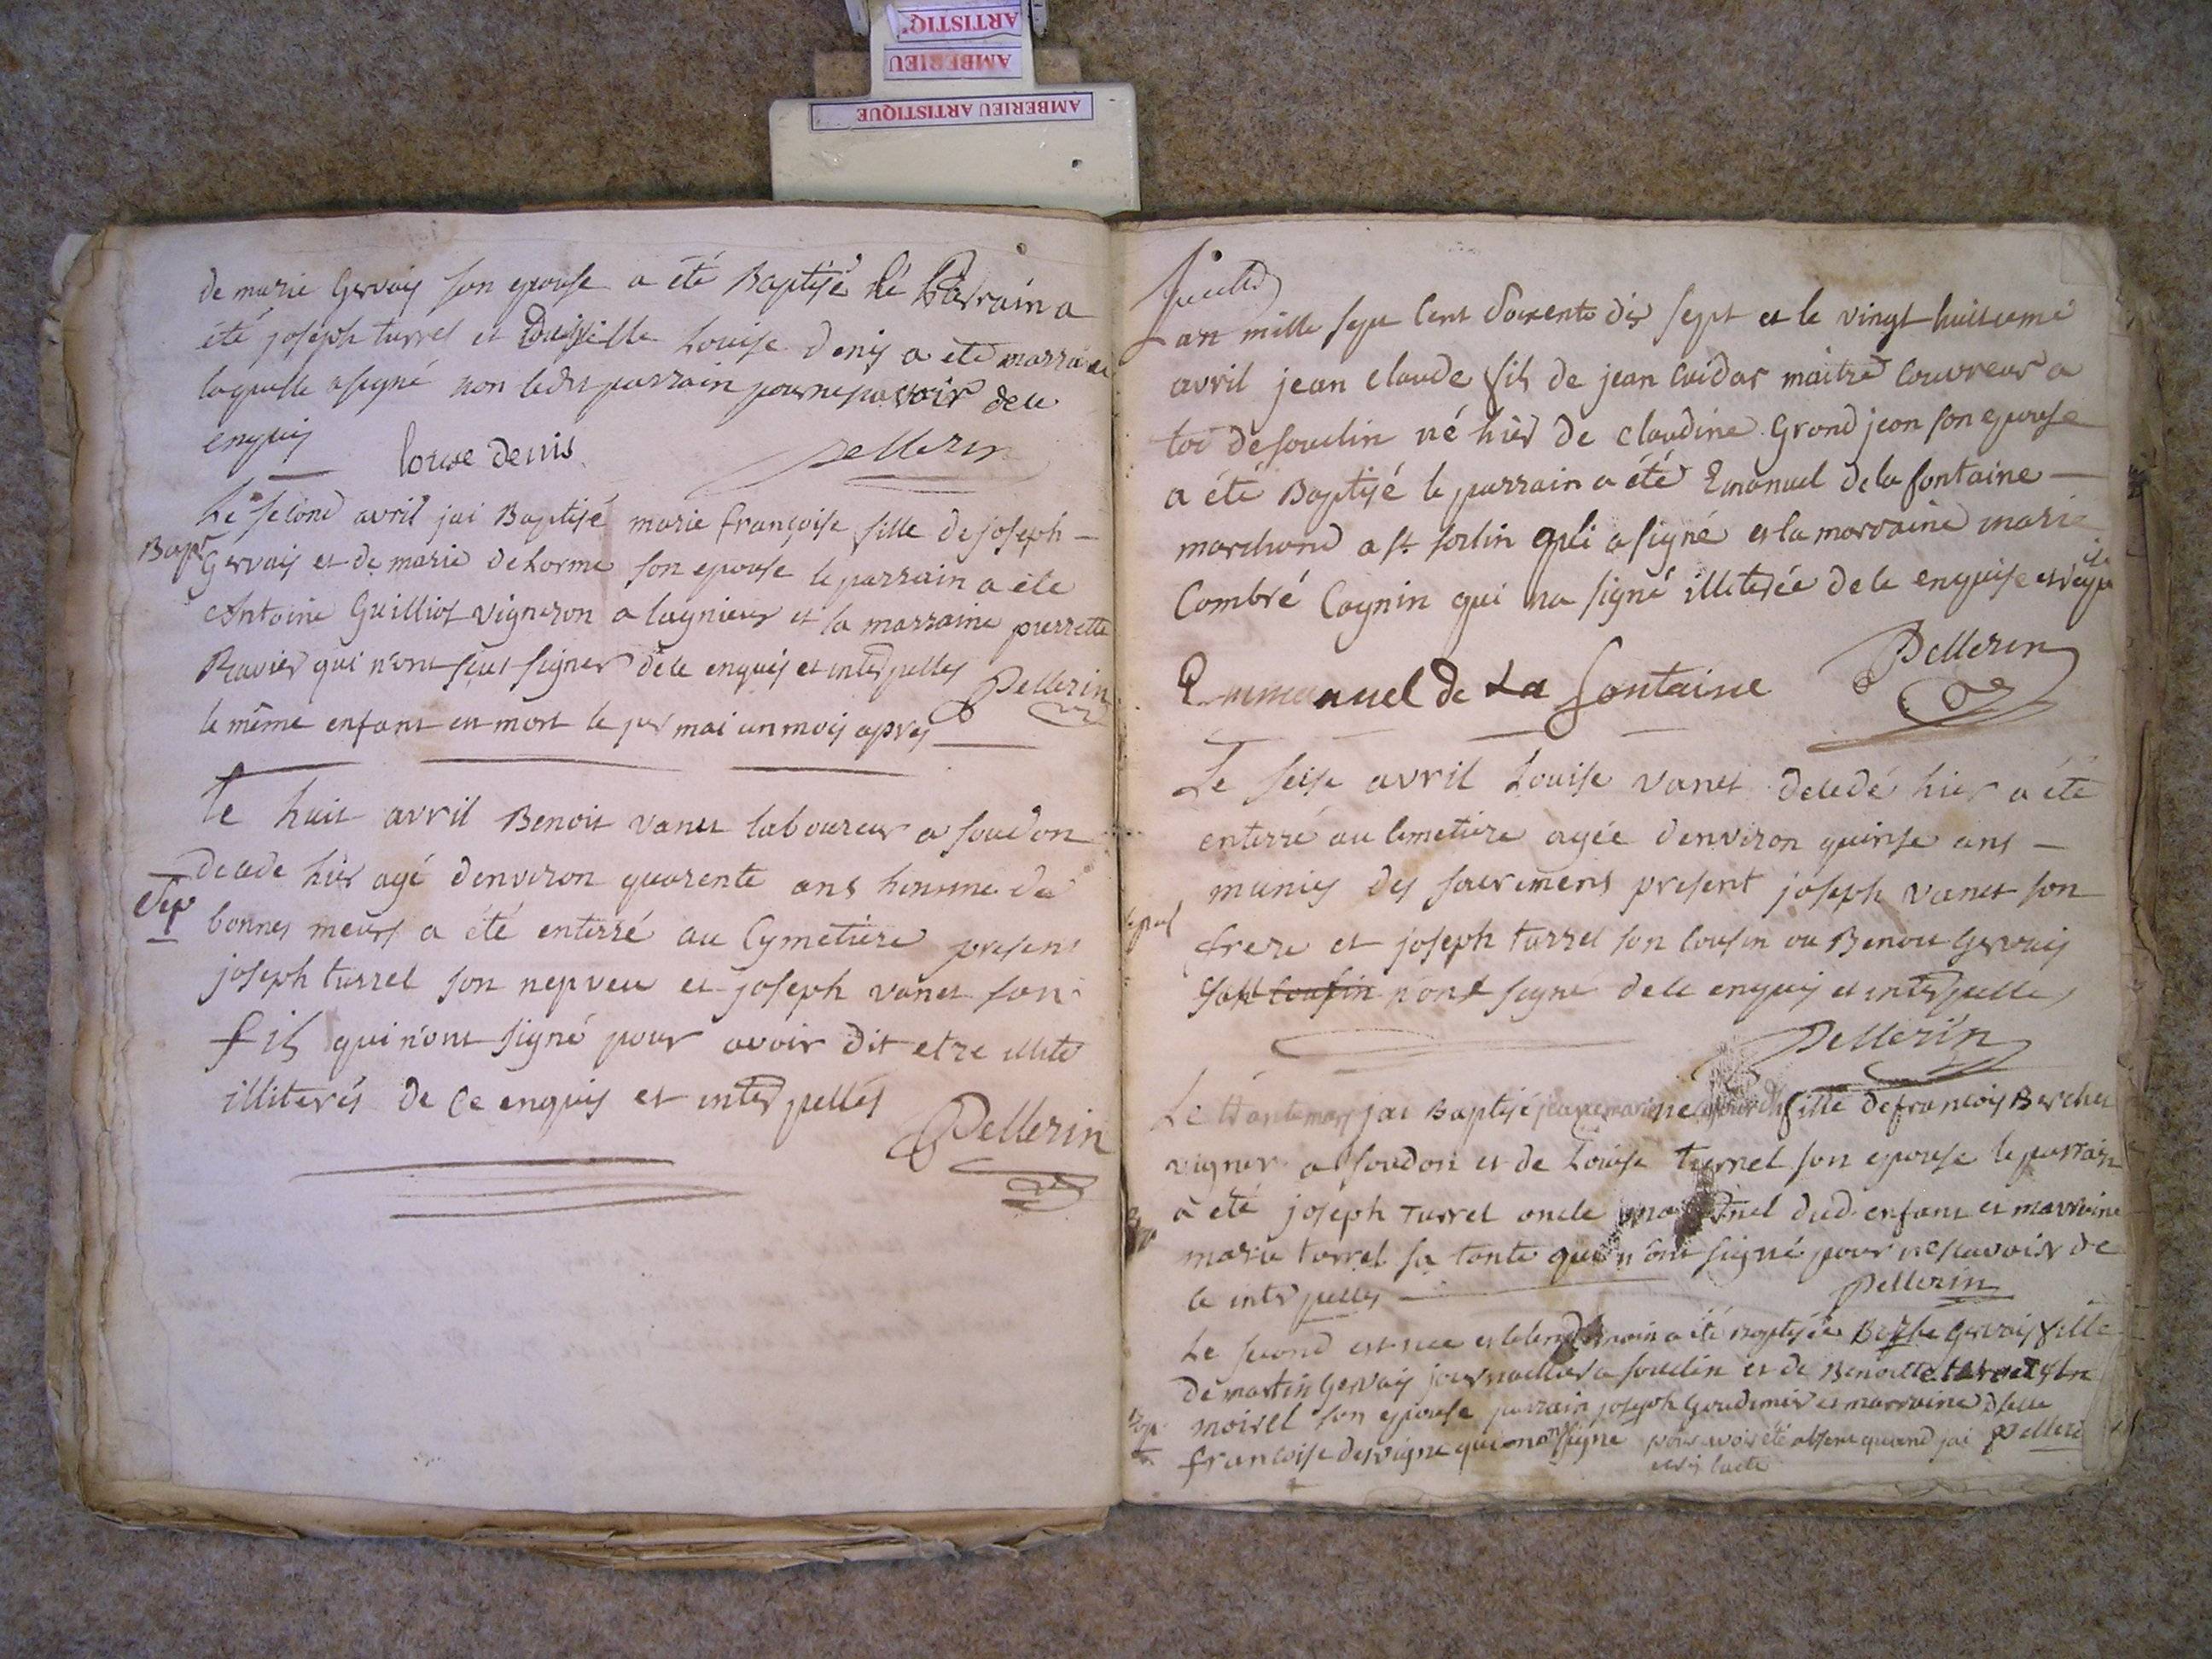 ARTISTIQ'
AMBERIEU
AMBERIEU ARTISTIQUE
de marie Gervais son epouse a été Baptisé le Parrain a
été joseph turrel et Louise denis a été marraine
laquelle a signé non ledit parrain pour ne savoir de ce
enquis
louise denis Pellerin
Le second avril jai Baptisé marie françoise fille de joseph
Bapt Gervais et de marie delorme son epouse le parrain a été
Antoine Guilliot vigneron a lagnieux et la marraine pierrette
Ravier qui n'ont sçus signer de ce enquis et interpelles Pellerin
le même enfant est mort le per mai un mois apres
Le huit avril Benoit vanet laboureur a soudon
decede hier agé d'environ quarente ans homme de
bonnes meurs a été enterré au Cymetiere present
joseph turrel son nepveu et joseph vanet son
fils qui n'ont signé pour avoir dit etre illite
illiterés de ce enquis et interpellés
Pellerin
Lan mille sept cent dix sept et le vingt huitieme
avril jean claude fils de jean cuidar maitre couvreur a
de soudin né hier de claudine Grand jean son epouse
a été Baptisé le parrain a été Emanuel de la fontaine
marchand a st sorlin qui a signé et la marraine marie
Combré Cognin qui na signé illiterée de ce enquise
Emmanuel de La fontaine Pellerin
Le seise avril Louise vanet decedé hier a été
enterré au cemetiere agée d'environ quinse ans
munies des sacremens present joseph vanet son
frere et joseph turrel son cousin ou Benoit Gervais
son cousin n'ont signé de ce enquis et interpelle
Pellerin
Le jai Baptisé fille de francois Bercher
vigner a soudon et de Louise turrel son epouse le parrain
a été joseph Turrel oncle dud enfant et marraine
marie turrel sa tante qui n'ont signé pour ne scavoir de
ce interpelles Pellerin
Le second est nee et le lendemain a été baptisée Gervais fille
de martin Gervais journallier a soudin et de Benoitte
moirel son epouse parrain joseph Goudimer et marraine
francoise desvigne qui non signe pour avoir été absent quand jai Pellerin